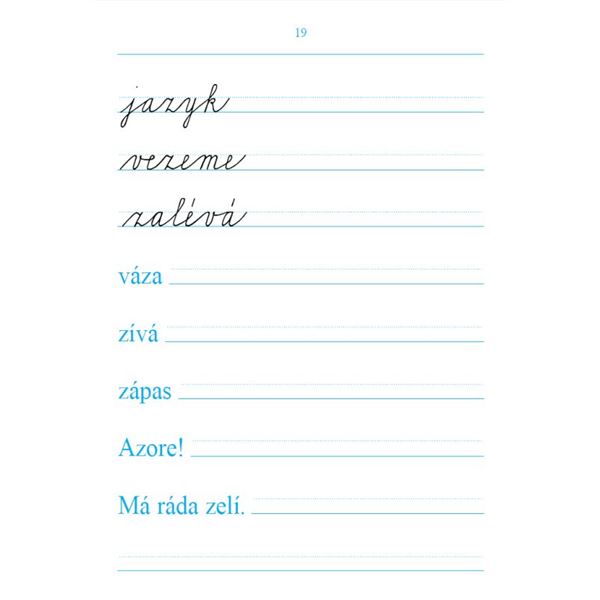 19
jazyk
vezeme
zalévá
váza
zívá
zápas
Azore!
Má ráda zelí.